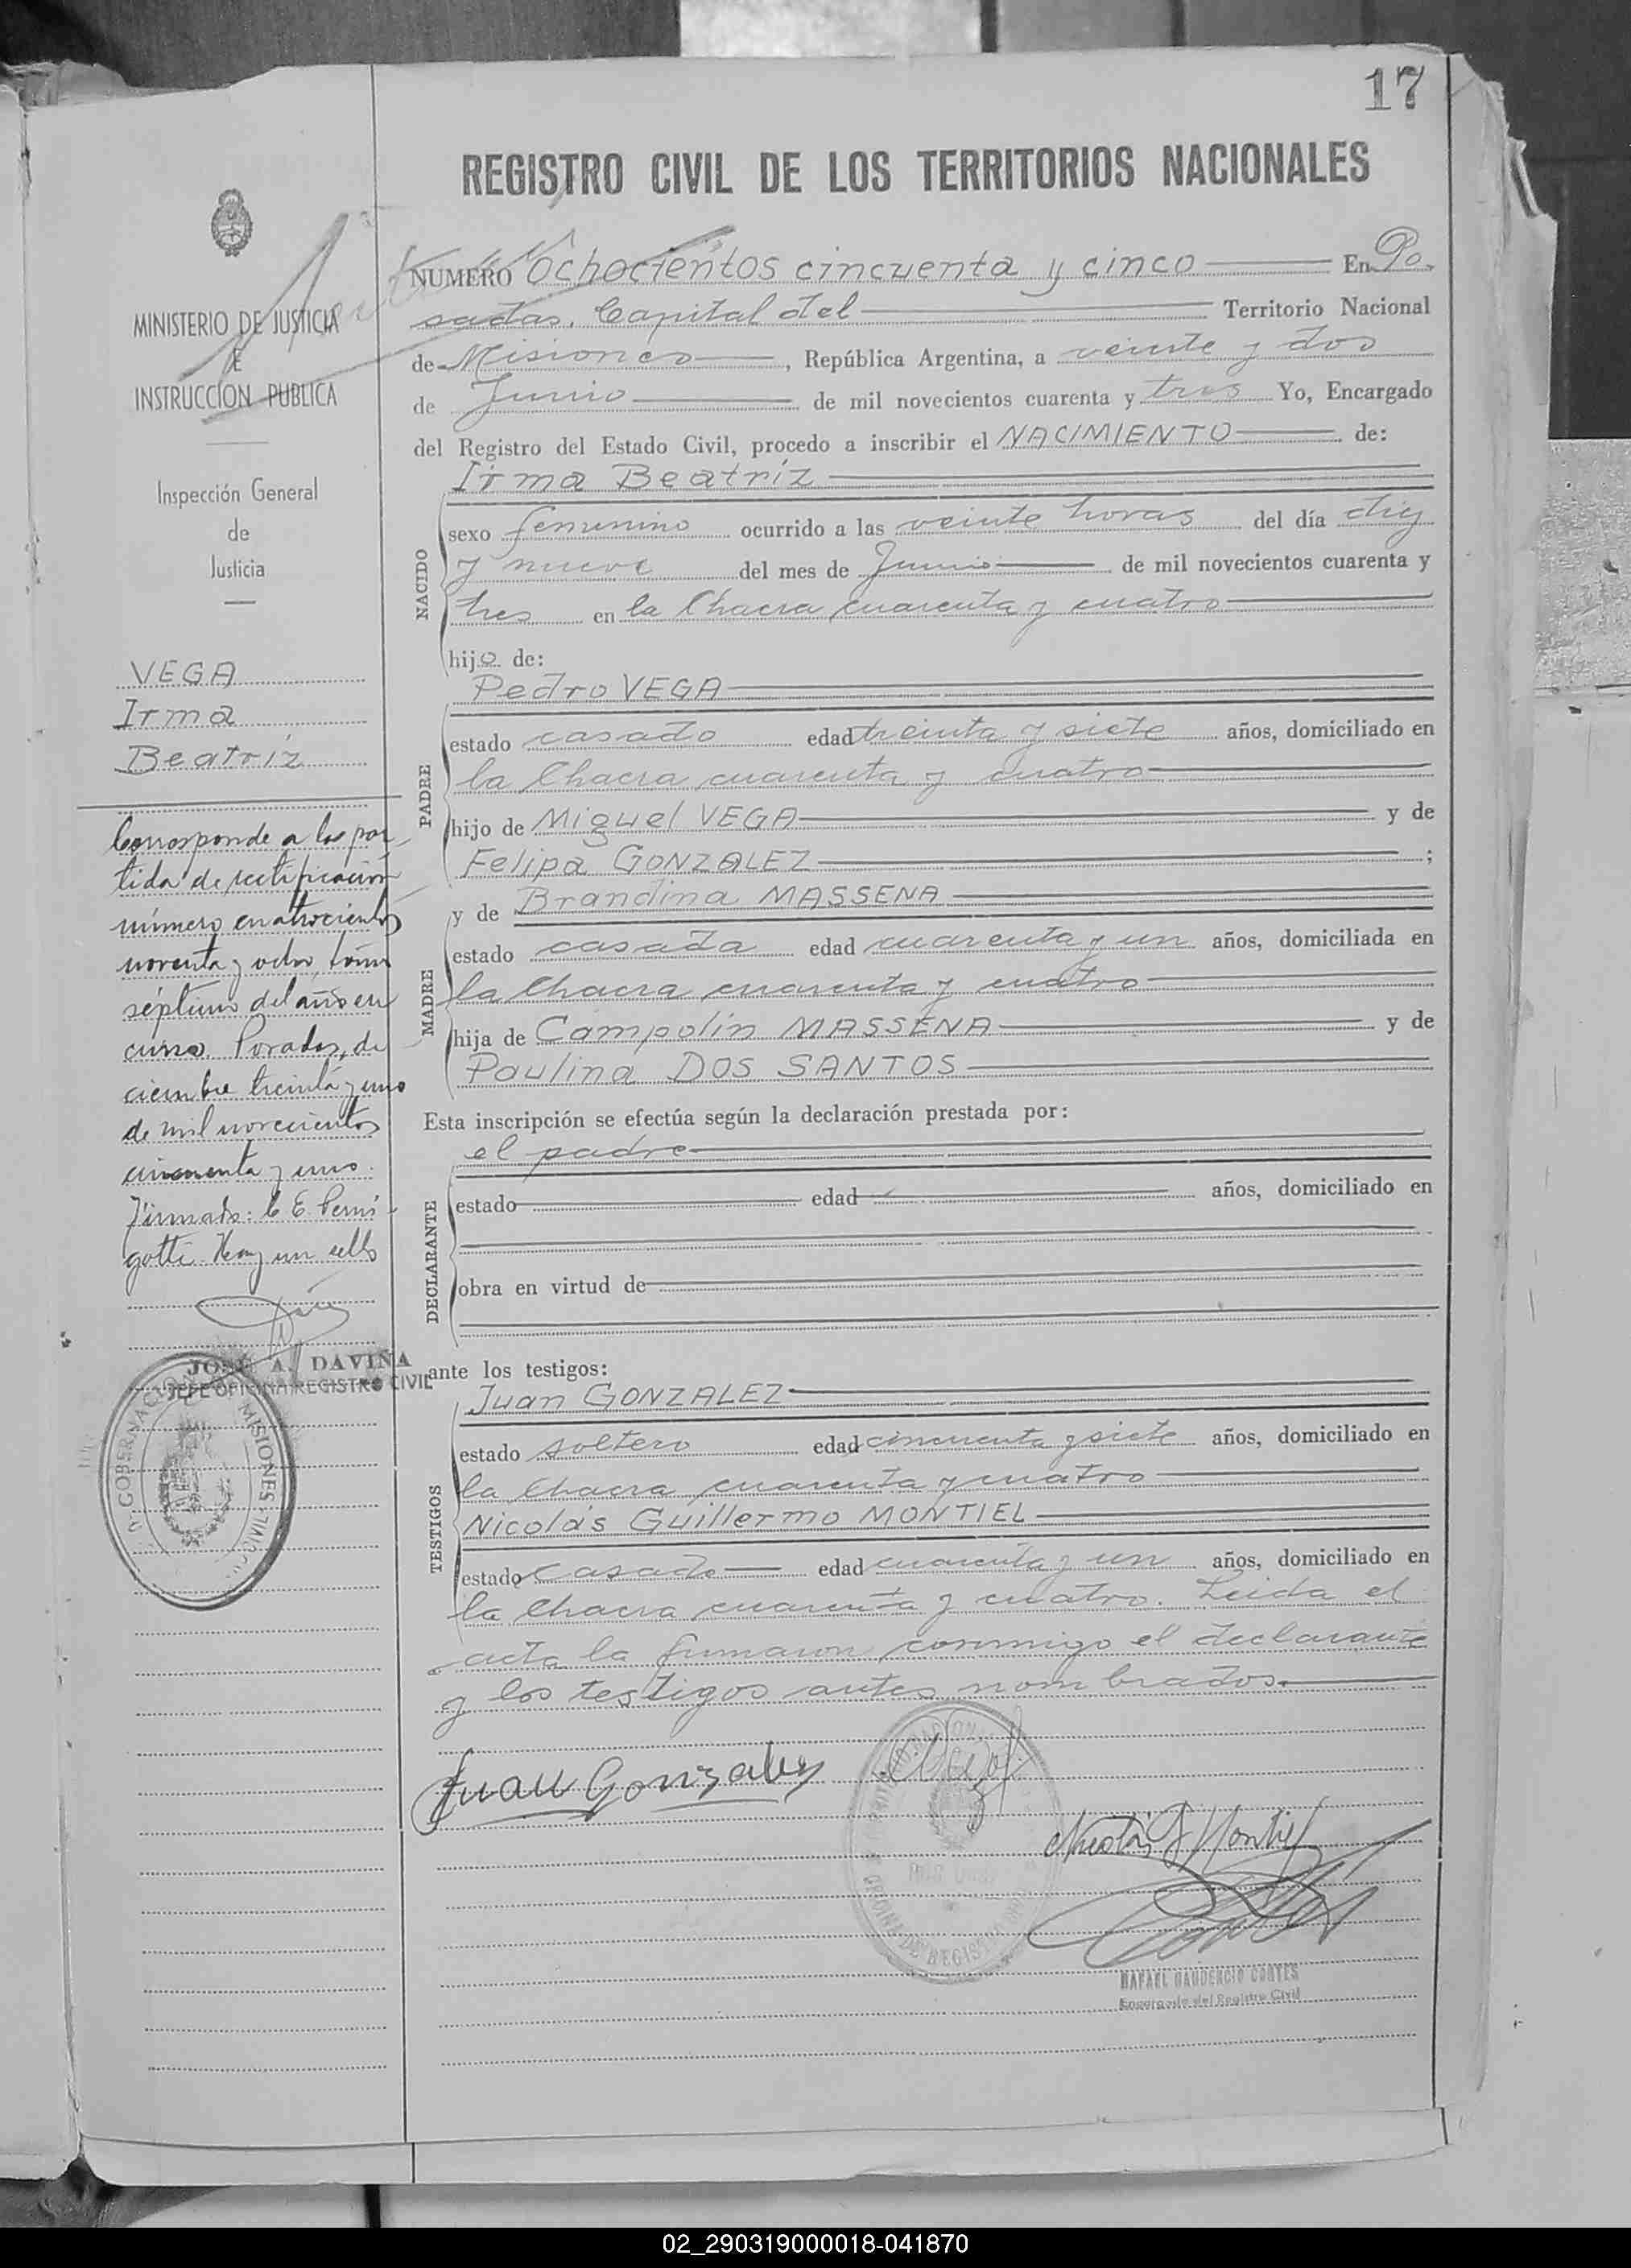 17
REGISTRO CIVIL DE LOS TERRITORIOS NACIONALES
MINISTERIO DE JUSTICIA
E
INSTRUCCIÓN PUBLICA
Inspección General
de
Justicia
VEGA
Irma
Beatríz
Corresponde a la par
tida de rectificación
número cuatrocientos
noventa y ocho, tomo
séptimo del año en
curso. Posadas, di
ciembre treinta y uno
de mil novecientos
cincuenta y uno.
Firmado: C. E. Perni
gotti. Hay un sello
JOSE A. DAVIÑA
JEFE OFICINA REGISTRO CIVIL
GOBERNACION MISIONES
NUMERO Ochocientos cincuenta y cinco En Po
sadas, Capital del Territorio Nacional
de Misiones, República Argentina, a veinte y dos
de Junio de mil novecientos cuarenta y tres Yo, Encargado
del Registro del Estado Civil, procedo a inscribir el NACIMIENTO de:
Irma Beatríz
NACIDO
sexo femenino ocurrido a las veinte horas del día diez
y nueve del mes de Junio de mil novecientos cuarenta y
tres en la Chacra cuarenta y cuatro
hijo de:
Pedro VEGA
PADRE
estado casado edad treinta y siete años, domiciliado en
la Chacra cuarenta y cuatro
hijo de Miguel VEGA y de
Felipa GONZALEZ ;
y de Brandina MASSENA
MADRE
estado casada edad cuarenta y un años, domiciliada en
la Chacra cuarenta y cuatro
hija de Campolín MASSENA y de
Paulina DOS SANTOS
Esta inscripción se efectúa según la declaración prestada por:
el padre
DECLARANTE
estado edad años, domiciliado en
obra en virtud de
ante los testigos:
Juan GONZALEZ
TESTIGOS
estado soltero edad cincuenta y siete años, domiciliado en
la Chacra cuarenta y cuatro
Nicolás Guillermo MONTIEL
estado casado edad cuarenta y un años, domiciliado en
la Chacra cuarenta y cuatro. Leída el
acta la firmaron conmigo el declarante
y los testigos antes nombrados.
Juan Gonzalez
Nicolás G Montiel
RAFAEL GAUDENCIO CORTES
Encargado del Registro Civil
02_290319000018-041870